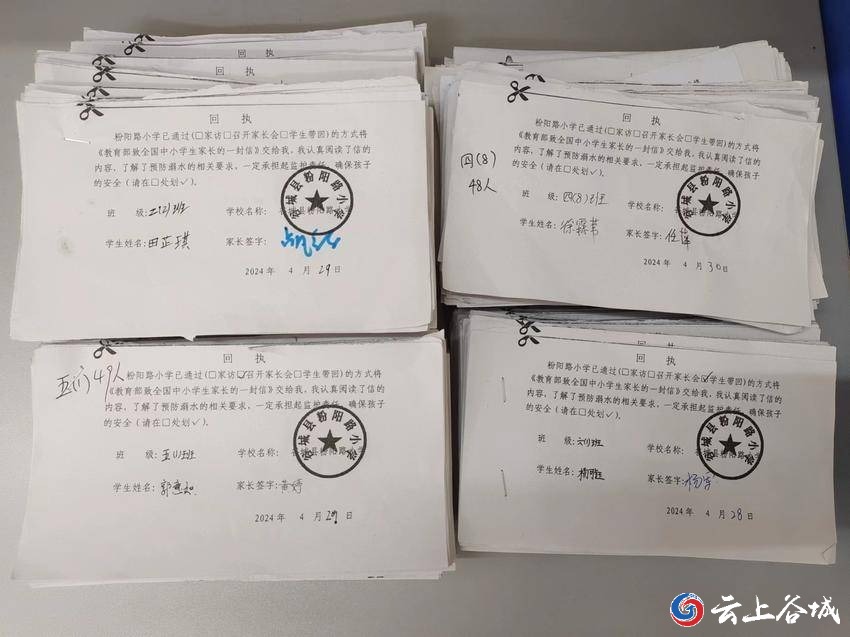 回 执
回 执
回 执
粉阳路小学已通过(□家访□召开家长会□学生带回)的方式将
《教育部致全国中小学生家长的一封信》交给我,我认真阅读了信的
内容,了解了预防溺水的相关要求,一定承担起监护责任,确保孩子
的安全(请在□处划✓)。
班 级: 二(2)班 学校名称: 谷城县粉阳路小学
学生姓名: 田芷琪 家长签字:
2024 年 4 月 29 日
谷城县粉阳路小学
回 执
四(8)
48人
粉阳路小学已通过(□家访□召开家长会□学生带回)的方式将
《教育部致全国中小学生家长的一封信》交给我,我认真阅读了信的
内容,了解了预防溺水的相关要求,一定承担起监护责任,确保孩子
的安全(请在□处划✓)。
班 级: 四(8)班 学校名称: 谷城县粉阳路小学
学生姓名: 徐霖芾 家长签字: 任萍
2024 年 4 月 30 日
谷城县粉阳路小学
回 执
五(1) 49人
粉阳路小学已通过(□家访☑召开家长会□学生带回)的方式将
《教育部致全国中小学生家长的一封信》交给我,我认真阅读了信的
内容,了解了预防溺水的相关要求,一定承担起监护责任,确保孩子
的安全(请在□处划✓)。
班 级: 五(1)班 学校名称: 谷城县粉阳路小学
学生姓名: 郭 家长签字: 黄婷
2024 年 4 月 29 日
谷城县粉阳路小学
回 执
粉阳路小学已通过(□家访□召开家长会☑学生带回)的方式将
《教育部致全国中小学生家长的一封信》交给我,我认真阅读了信的
内容,了解了预防溺水的相关要求,一定承担起监护责任,确保孩子
的安全(请在□处划✓)。
班 级: 六(1)班 学校名称: 谷城县粉阳路小学
学生姓名: 家长签字: 杨
2024 年 4 月 28 日
谷城县粉阳路小学
云上谷城